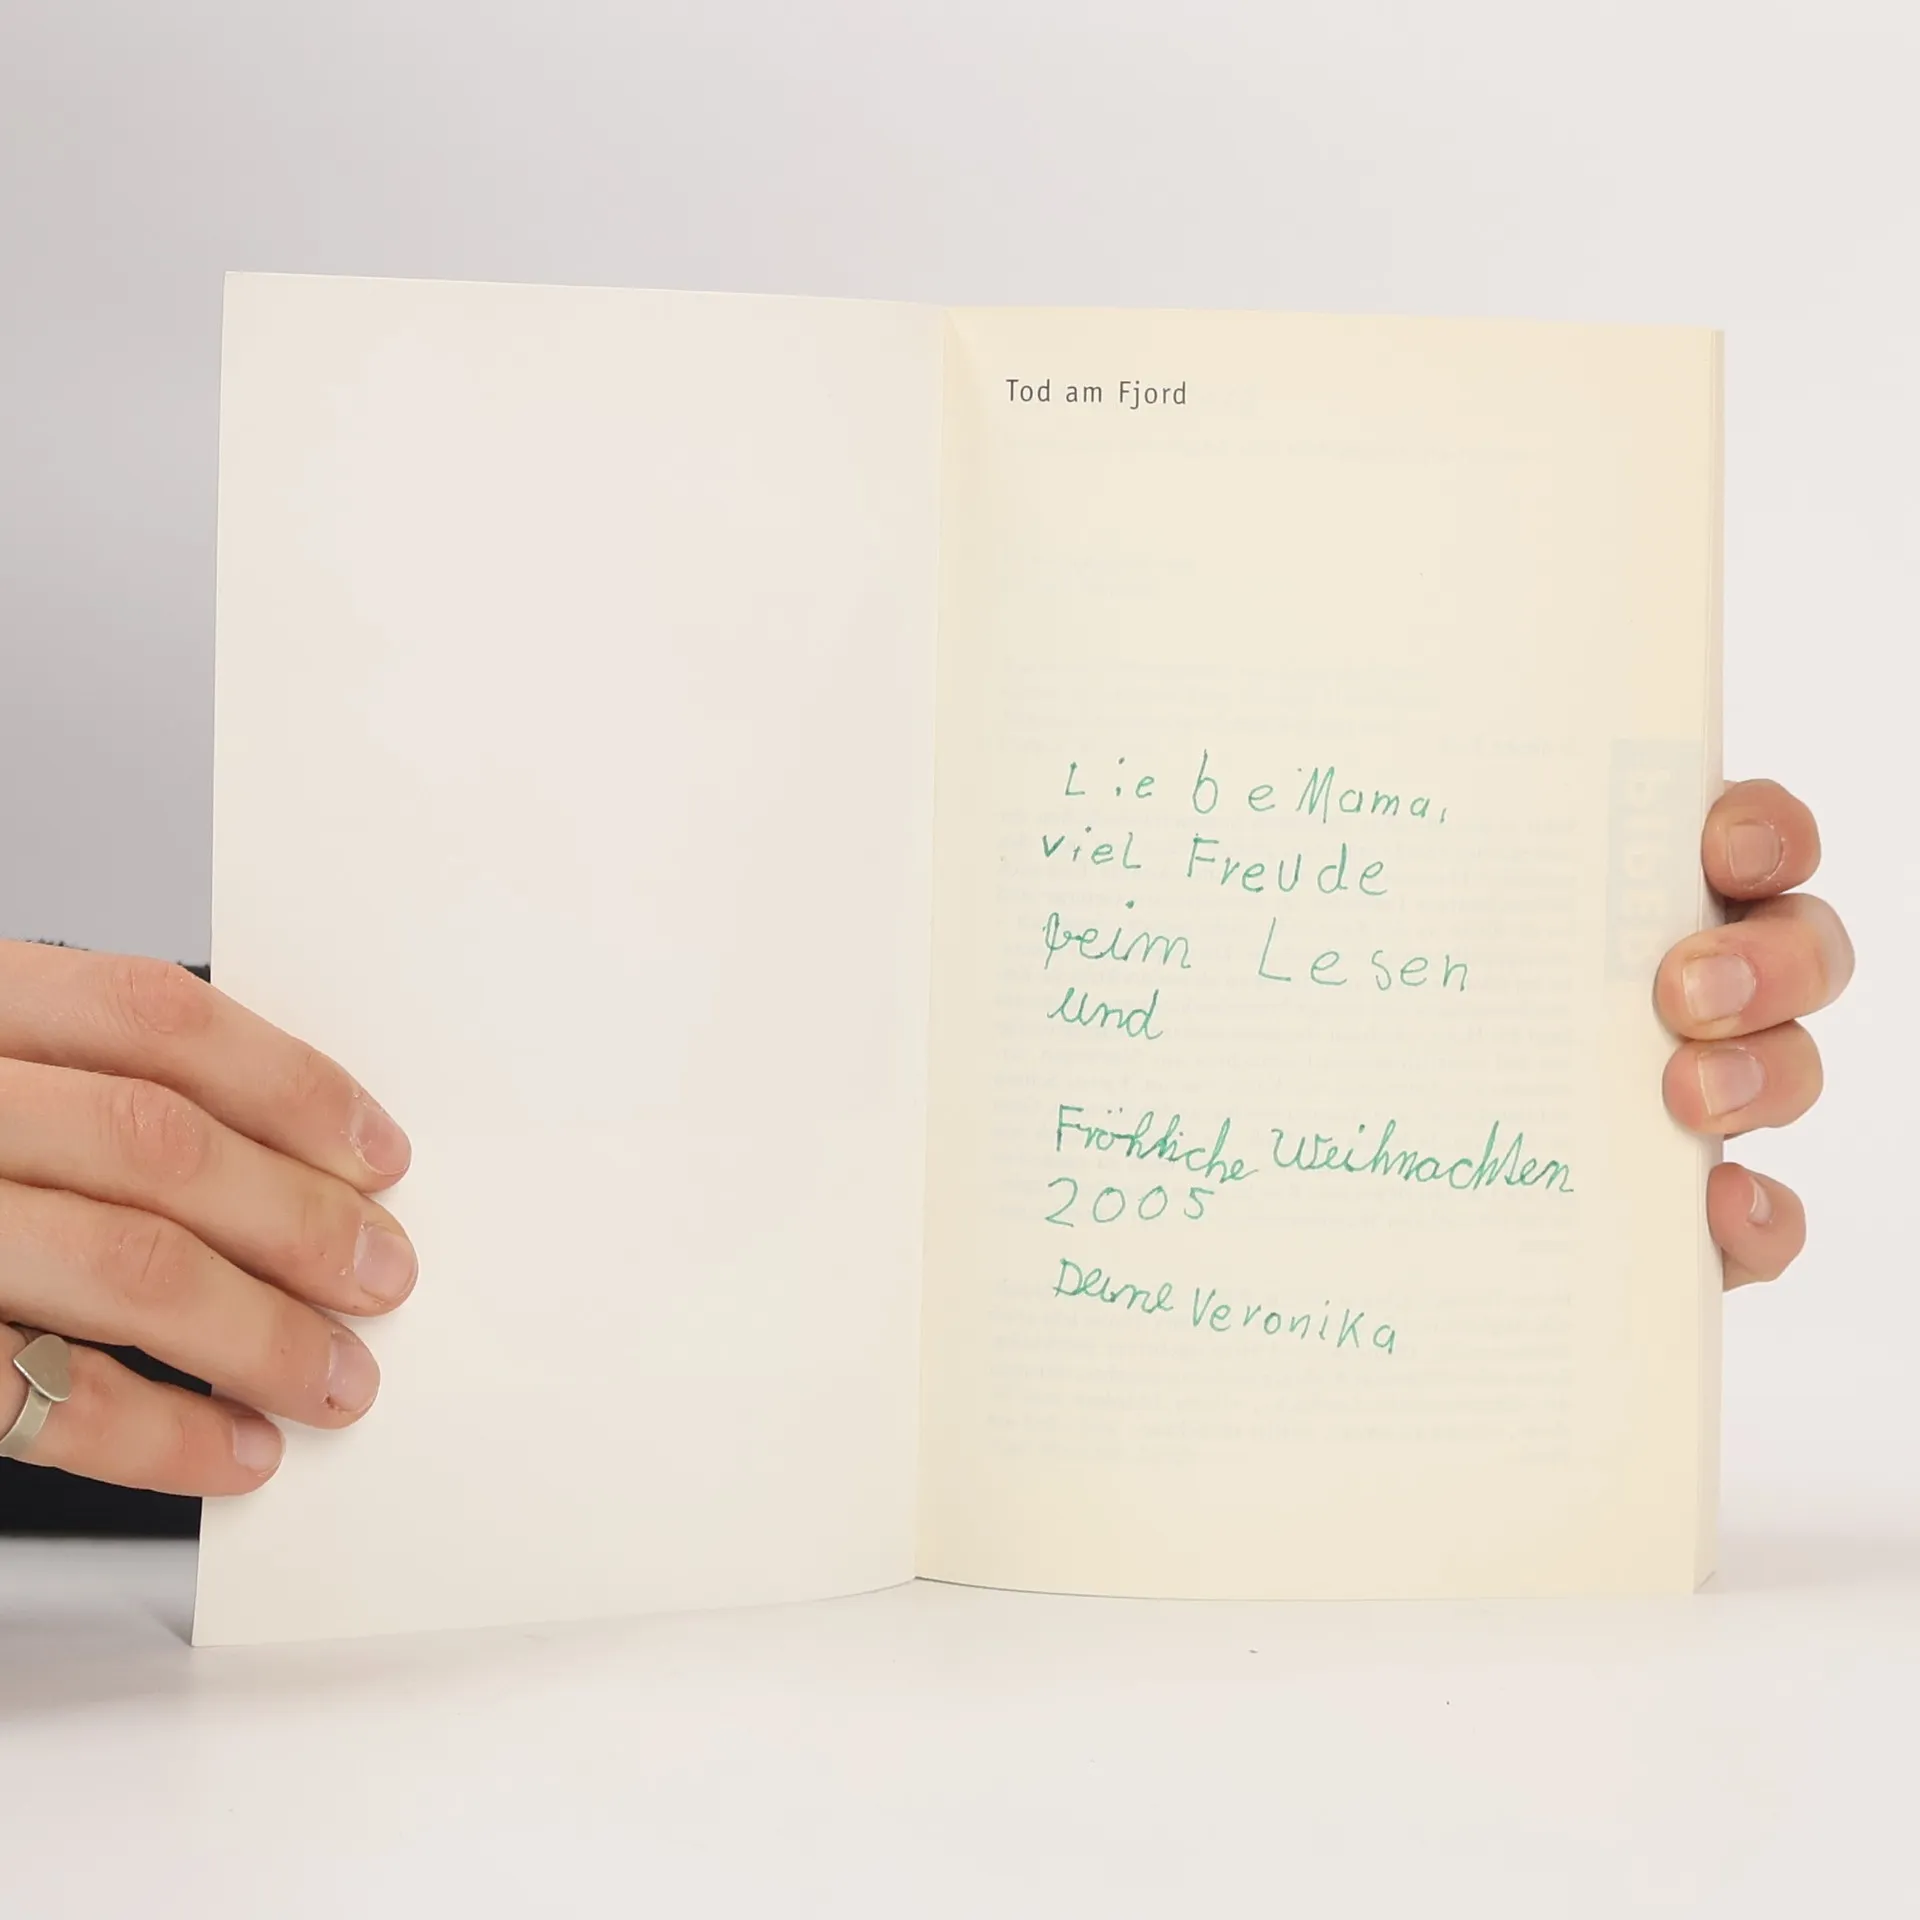 Tod am Fjord
Liebe Mama,
viel Freude
beim Lesen
und
Fröhliche Weihnachten
2005
Deine Veronika